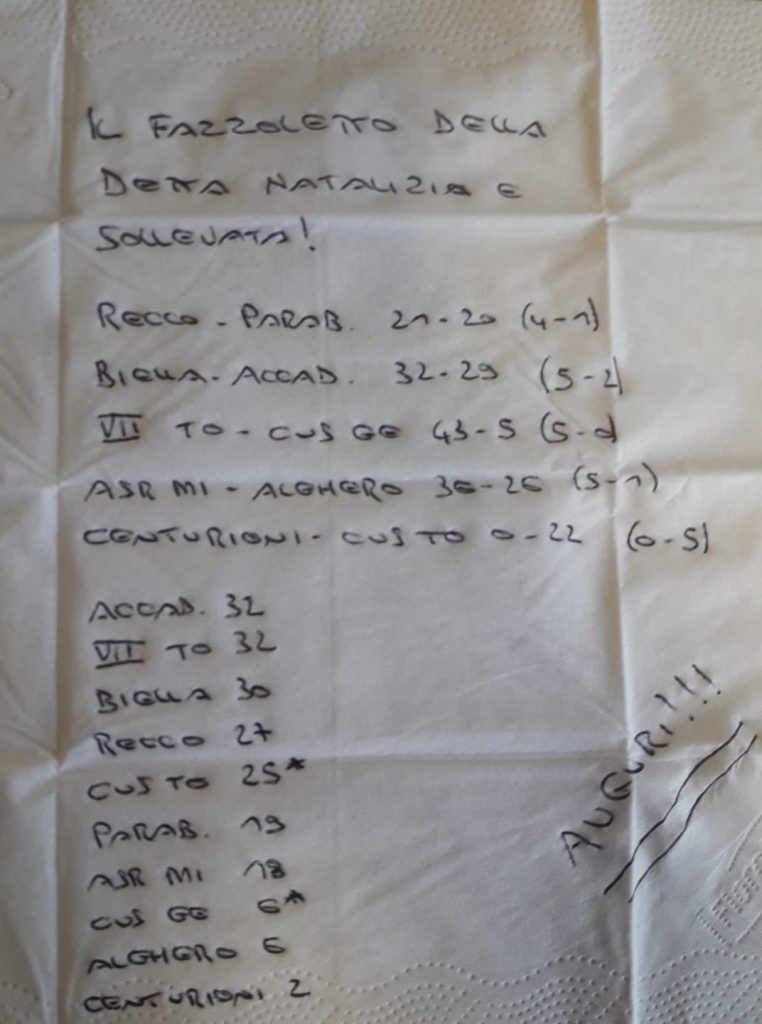 IL FAZZOLETTO DELLA
DETTA NATALIZIA E
SOLLEVATA!
RECCO - PARAB. 21-20 (4-1)
BIELLA - ACCAD. 32-29 (5-2)
VII TO - CUS GE 43-5 (5-0)
ASR MI - ALGHERO 36-26 (5-1)
CENTURIONI - CUS TO 0-22 (0-5)
ACCAD. 32
VII TO 32
BIELLA 30
RECCO 27
CUS TO 25*
PARAB. 19
ASR MI 18
CUS GE 6*
ALGHERO 6
CENTURIONI 2
AUGURI!!!